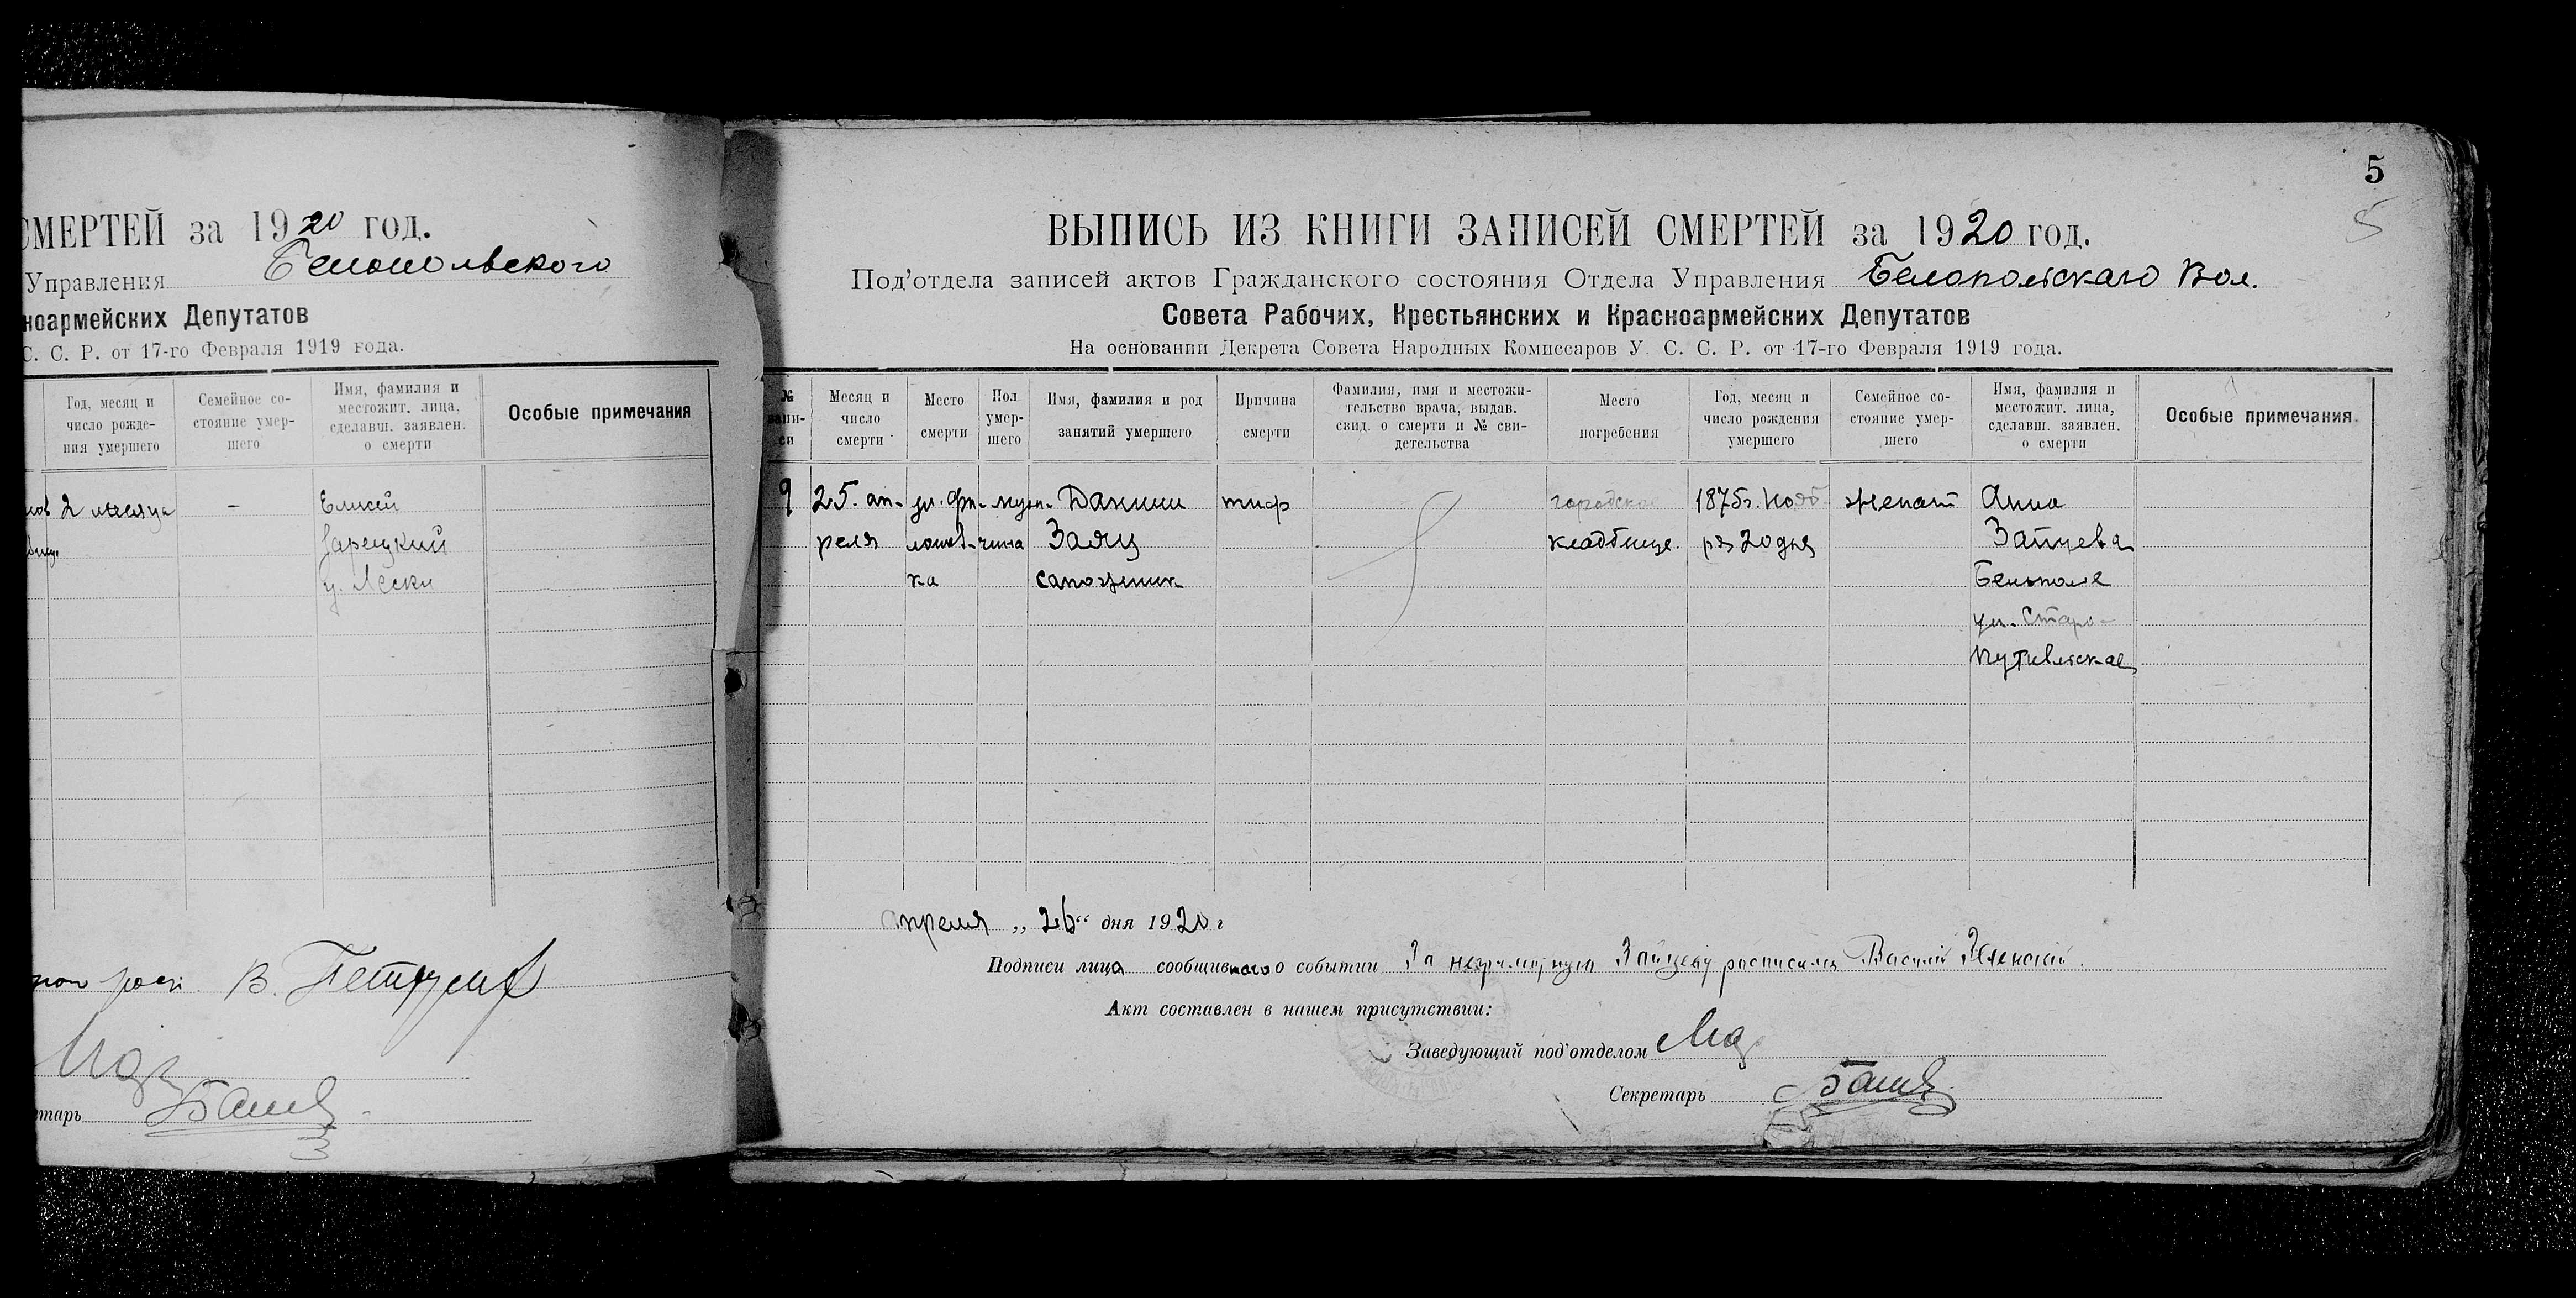 СМЕРТЕЙ за 1920 год.
Управления Белопольского
ноармейских Депутатов
С. С. Р. от 17-го Февраля 1919 года.
Год, месяц и
число рожде-
ния умершего
Семейное со-
стояние умер-
шего
Имя, фамилия и
местожит. лица,
сделавш. заявлен.
о смерти
Особые примечания
2 месяца
–
Елисей
Зарецкий
у. Лески
В.
тарь
5
5
ВЫПИСЬ ИЗ КНИГИ ЗАПИСЕЙ СМЕРТЕЙ за 1920 год.
Под'отдела записей актов Гражданского состояния Отдела Управления Белопольскаго Вол.
Совета Рабочих, Крестьянских и Красноармейских Депутатов
На основании Декрета Совета Народных Комиссаров У. С. С. Р. от 17-го Февраля 1919 года.
№
запи-
си
Месяц и
число
смерти
Место
смерти
Пол
умер-
шего
Имя, фамилия и род
занятий умершего
Причина
смерти
Фамилия, имя и местожи-
тельство врача, выдав.
свид. о смерти и № сви-
детельства
Место
погребения
Год, месяц и
число рождения
умершего
Семейное со-
стояние умер-
шего
Имя, фамилия и
местожит. лица,
сделавш. заявлен.
о смерти
Особые примечания
9
25. ап-
реля
ул. Фи-
ловс-
ка
муж-
чина
Даниил
Заяц
сапожник
тиф
городское
кладбище
1875г. нояб-
ря 20 дня
женат
Анна
Зайцева
Белополе
ул. Старо-
Путивльская
Апреля „ 26 “ дня 1920 г
Подписи лица сообщившаго о событии За неграмотную Зайцеву расписался Василий Зеленский.
Акт составлен в нашем присутствии:
Заведующий под'отделом
Секретарь